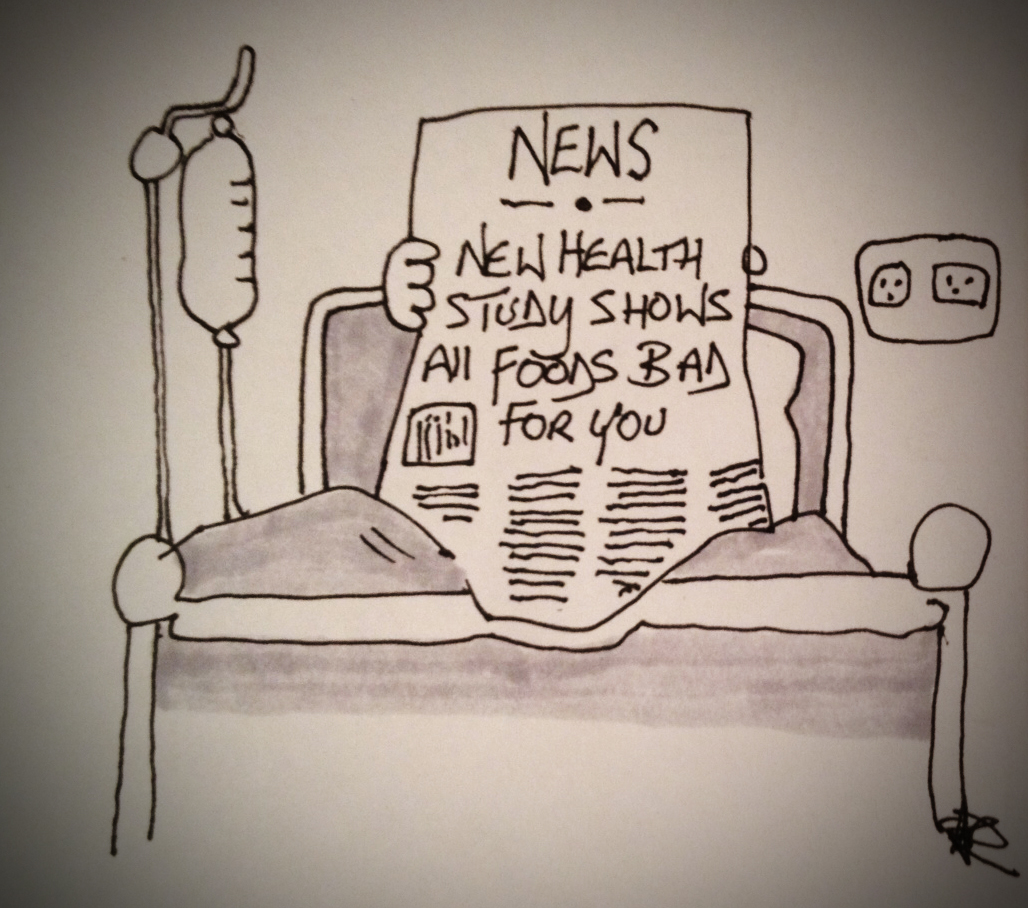 NEWS
NEW HEALTH
STUDY SHOWS
All FOODS BAD
FOR YOU